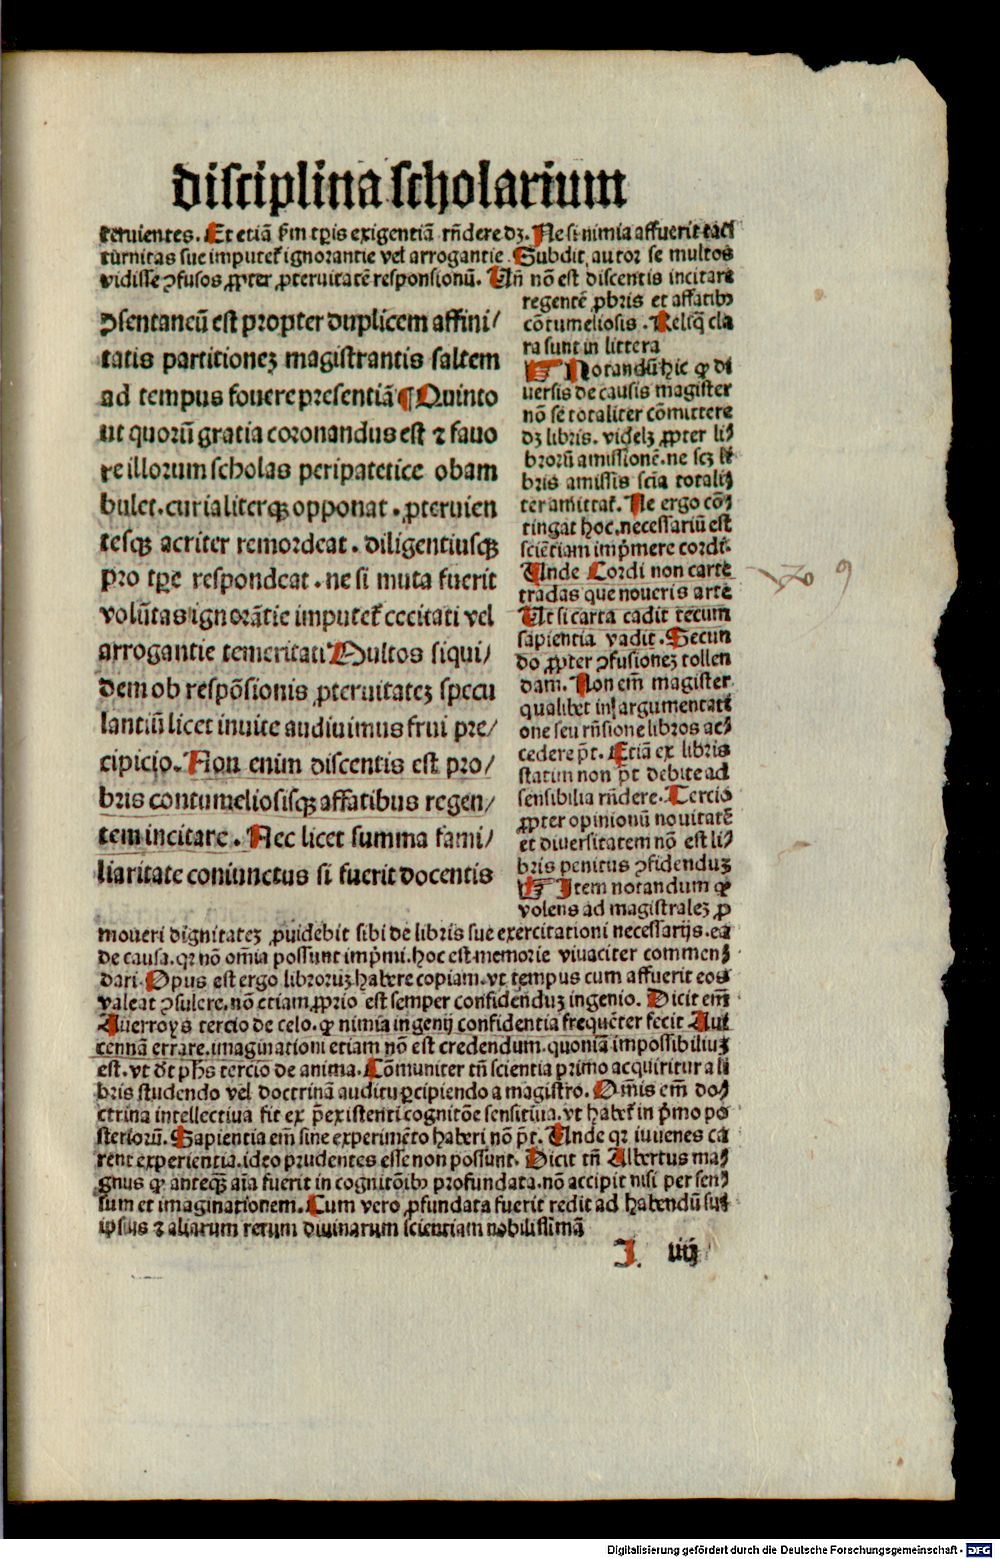 disciplina scholarium
teruientes. Et etiā ẜm tꝑis exigentiā rñdere dꝫ. Ne si nimia affuerit taci
turnitas sue imputet᷑ ignorantie vel arrogantie. Subdit autor se multos
vidisse ꝯfusos ꝓpter ꝓteruitatē responsionū. Uñ nō est discentis incitare
regentē ꝓbris et affatibꝰ
cōtumeliosis. Reliq̄ cla
ra sunt in littera
ꝯsentaneū est propter duplicem affini/
tatis partitionez magistrantis saltem
ad tempus fouere presentiā ¶ Quinto
ut quorū gratia coronandus est ⁊ fauo
re illorum scholas peripatetice obam
bulet. curialiterqꝫ opponat. ꝓteruien
tesqꝫ acriter remordeat. diligentiusqꝫ
pro tꝑe respondeat. ne si muta fuerit
volūtas ignorātie imputet᷑ cecitati vel
arrogantie temeritati Multos siqui/
dem ob respōsionis ꝓteruitatez specu
lantiū licet inuite audiuimus frui pre/
cipicio. Non enim discentis est pro/
bris contumeliosisqꝫ affatibus regen/
tem incitare. Nec licet summa fami/
liaritate coniunctus si fuerit docentis
☞ Notandū hic ꝙ di
uersis de causis magister
nō se totaliter cōmittere
dꝫ libris. videlꝫ ꝓpter li⸗
brorū amissionē. ne scꝫ li
bris amissis scīa totali⸗
ter amittat᷑. Ne ergo cō⸗
tingat hoc. necessariū est
sciētiam imp̄mere cordi.
Unde Cordi non carte
tradas que noueris arte
Ut si carta cadit tecum
sapientia vadit. Secun
do ꝓpter ꝯfusionez tollen
dam. Non em̄ magister
qualibet in argumentati
one seu rñsione libros ac⸗
cedere p̄t. Etiā ex libris
statim non p̄t debite ad
sensibilia rñdere. Tercio
ꝓpter opinionū nouitatē
et diuersitatem nō est li⸗
bris penitus ꝯfidenduz
☞ Item notandum ꝙ
volens ad magistralez ꝓ
moueri dignitatez ꝓuidebit sibi de libris sue exercitationi necessarijs. ea
de causa. qꝛ nō om̄ia possunt imp̄mi. hoc est memorie viuaciter commen⸗
dari. Opus est ergo libroruz habere copiam. vt tempus cum affuerit eos
valeat ꝯsulere. nō etiam ꝓprio est semper confidenduz ingenio. Dicit em̄
Auerroys tercio de celo. ꝙ nimia ingenij confidentia frequēter fecit Aui
cennā errare. imaginationi etiam nō est credendum. quoniā impossibiliuꝫ
est. vt dt̄ ph̄s tercio de anima. Cōmuniter tn̄ scientia primo acquiritur a li
bris studendo vel doctrinā auditu ꝑcipiendo a magistro. Om̄is em̄ do⸗
ctrina intellectiua fit ex p̄existenti cognitōe sensitiua. vt habet᷑ in p̄mo po
steriorū. Sapientia em̄ sine experimēto haberi nō p̄t. Unde qꝛ iuuenes ca
rent experientia. ideo prudentes esse non possunt. Dicit tn̄ Albertus ma⸗
gnus ꝙ anteqꝫ aīa fuerit in cognitōibꝰ profundata. nō accipit nisi per sen⸗
sum et imaginationem. Cum vero ꝓfundata fuerit redit ad habendū sui
ipsius ⁊ aliarum rerum diuinarum scientiam nobilissimā
I. iiij
Digitalisierung gefördert durch die Deutsche Forschungsgemeinschaft - DFG